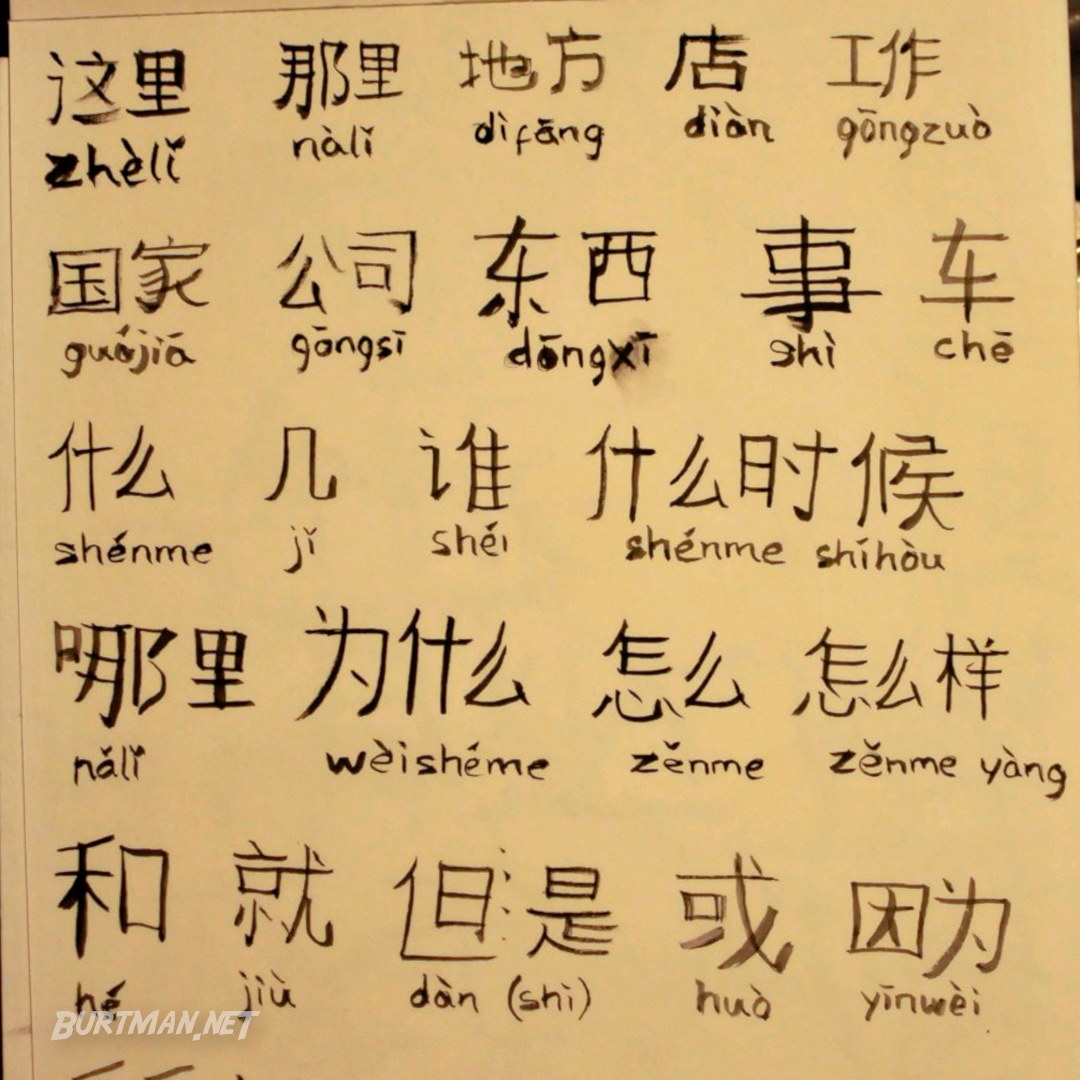 这里 那里 地方 店 工作
zhèlǐ nàlǐ dìfāng diàn gōngzuò
国家 公司 东西 事 车
guójiā gōngsī dōngxī shì chē
什么 几 谁 什么时候
shénme jǐ shéi shénme shíhòu
哪里 为什么 怎么 怎么样
nǎlǐ wèishéme zěnme zěnme yàng
和 就 但是 或 因为
hé jiù dàn (shì) huò yīnwèi
BURTMAN.NET